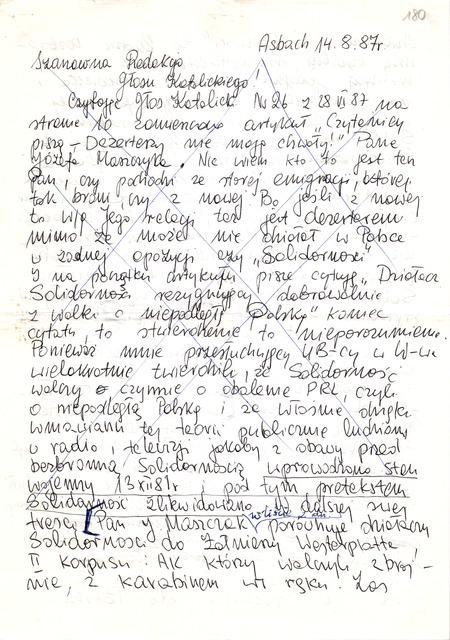 180
Asbach 14.8.87r.
Szanowna Redakcjo
Głosu Katolickiego!
Czytając Głos Katolicki Nr 26 z 28 VI 87 na
stronie 10 zamieszczono artykuł „Czytelnicy
piszą – Dezerterzy nie mają chwały!" Pana
Józefa Maszczyka. Nie wiem kto to jest ten
Pan, czy pochodzi ze starej emigracji, której
tak broni, czy z nowej. Bo jeśli z nowej
to w/p Jego relacji też jest dezerterem
mimo że może nie działał w Polsce
w żadnej opozycji czy „Solidarności"
I na początku artykułu pisze cytuję „Działacz
Solidarności rezygnujący dobrowolnie
z walki o niepodległą Polskę" koniec
cytatu, to stwierdzenie to nieporozumienie.
Ponieważ mnie przesłuchujący UB-cy w W-wie
wielokrotnie twierdzili, że Solidarność
walczy czynnie o obalenie PRL, czyli
o niepodległą Polskę i że właśnie dzięki
wmawianiu tej teorii publicznie ludziom
w radio, telewizji jakoby z obawy przed
bezbronną Solidarnością wprowadzono stan
wojenny 13 XII 81r i pod tym pretekstem
Solidarność zlikwidowano. W dalszej swej
treści Pan J Maszczak porównuje działaczy
Solidarności do Żołnierzy Westerplatte,
II korpusu i AK którzy walczyli zbroj-
nie, z karabinem w ręku. Zaś